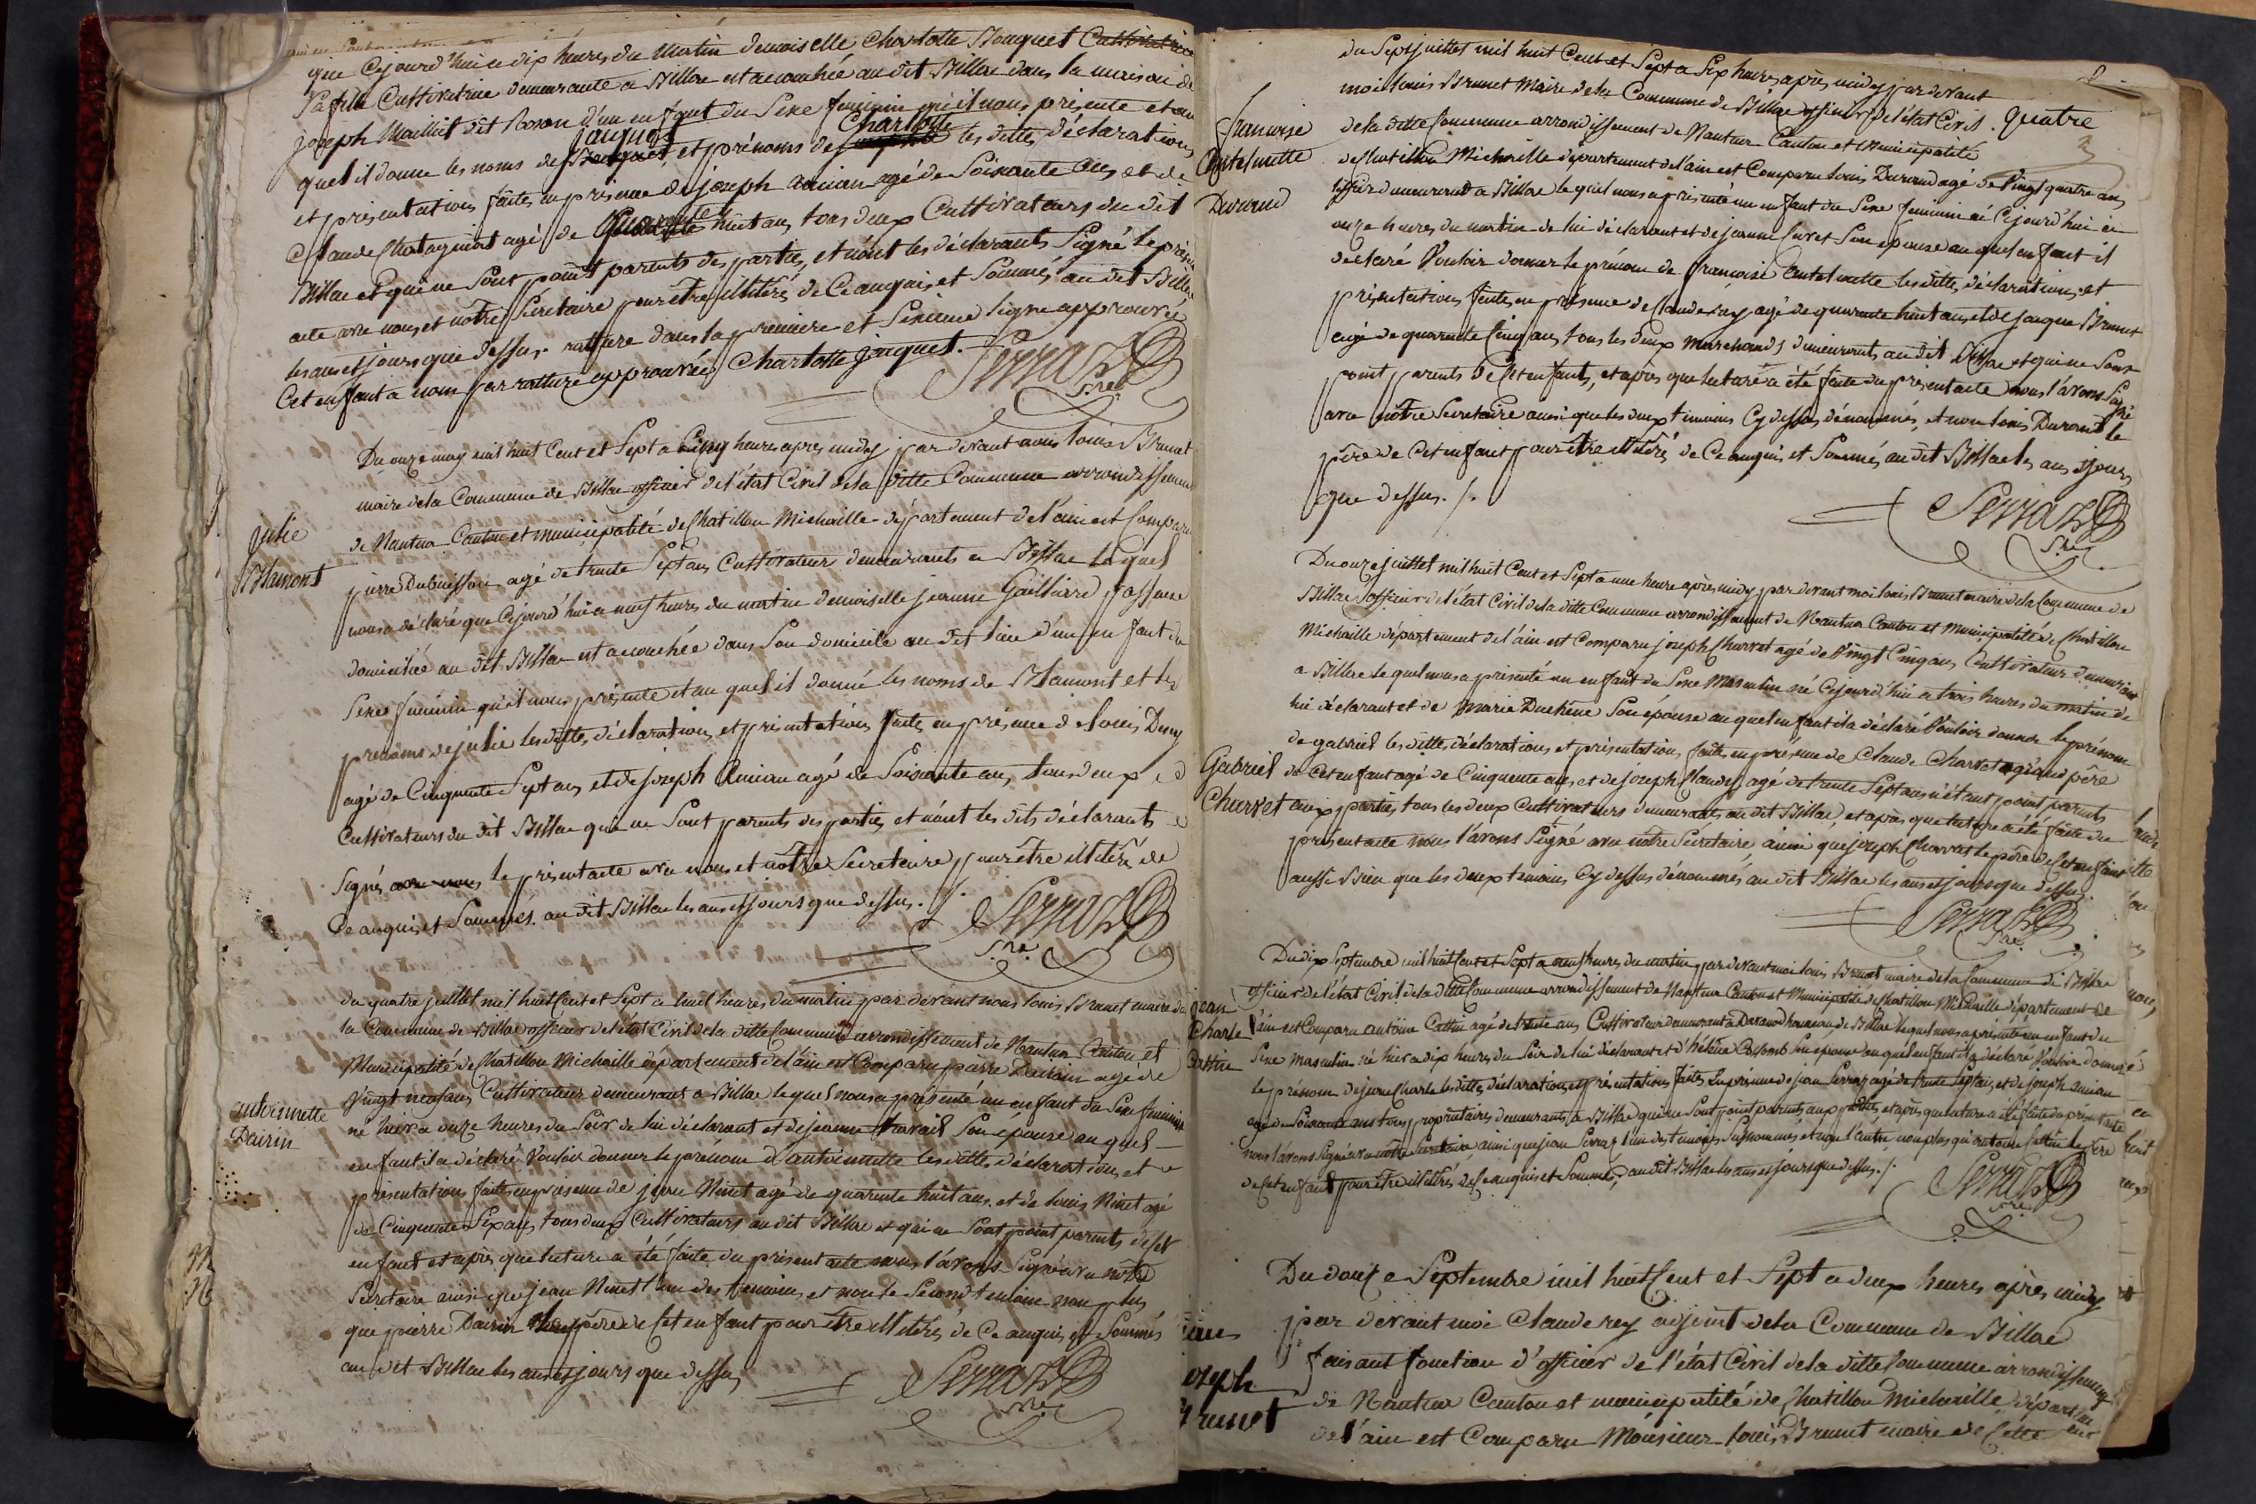 que Cejourd'hui a dix heures du Matin demoiselle Charlotte Bouquet Cultivatrice
Sa fille Cultivatrice demeurante a Billiae est acouchée au dit Billiae dans la maison de
joseph Maillet dit Roson d'un enfant du Sexe feminin qu'il nous présente et au
quel il donne les noms de Jaquet et prénoms de Charlotte les dittes déclarations
et présentations faites en présence de joseph anian agé de Soixante ans et de
Claude Chatagniat agé de quarante huit ans tous deux Cultivateurs du dit
Billiae et qui ne sont point parents des parties, et n'ont les déclarants Signé le présent
acte avec nous et nôtre Secretaire pour être illitérés de Ce anquis et Sommés au dit Billiae
les ans et jours que dessus. rature dans la premiere et Sixieme ligne approuvée
Cet enfant a nom par rature approuvée Charlotte jaquet.
Serraz
S.re
Julie
Blamont
Du onze may mil huit Cent et Sept a Cinq heures apres midy par devant nous louis Brunet
maire de la Commune de Billiae officier de l'état Civil de la ditte Commune arrondissement
de Nantua Canton et municipalité de Chatillon Michaille département de l'ain est Comparu
pierre Dubuisson agé de trente Sept ans Cultivateur demeurants a Billiae lequel
nous a déclaré que Cejourd'hui a neuf heures du matin demoiselle jeanne Gailliard
domiciliée au dit Billiae est acouchée dans Son domicile au dit lieu d'un enfant du
Sexe feminin qu'il nous présente et au quel il donné les noms de Blamont et les
prenoms de julie les dittes déclarations et présentations faites en présence de louis Dupuy
agé de Cinquante Sept ans et de joseph anian agé de Soixante ans, tous deux
Cultivateurs du dit Billiae qui ne sont parents des parties et n'ont les dits déclarants
Signés avec nous le présent acte avec nous et nôtre Secretaire pour être illitérés de
Ce anquis et Sommés. au dit Billiae les ans et jours que dessus. /.
Serraz
S.re
antoinette
Dairin
du quatre juillet mil huit Cent et Sept a huit heures du matin par devant nous louis Brunet maire de
la Commune de Billiae officier de l'état Civil de la ditte Commune arrondissement de Nantua Canton et
Municipalité de Chatillon Michaille département de l'ain est Comparu pierre Dairin agé de
Vingt neuf ans Cultivateur demeurant a Billiae lequel nous a présenté un enfant du Sexe feminin
né hier a onze heures du Soir de lui déclarant et de jeanne travail Son epouse au quel
enfant il a déclaré Vouloir donner le prénom d'antoinette les dittes déclarations et
présentations faites en présence de jean Ninet agé de quarante huit ans et de louis Ninet agé
de Cinquante Six ans tous deux Cultivateurs au dit Billiae et qui ne Sont point parents de Cet
enfant et après que lecture a été faite du présent acte nous l'avons Signé avec nôtre
Secretaire ainsi que jean Ninet l'un des temoins et non le Second temoin non plus
que pierre Dairin père de Cet enfant pour être illitérés de Ce anquis et Sommés
au dit Billiae les ans et jours que dessus
Serraz
S.re
du Sept juillet mil huit Cent et Sept a Six heures après midy par devant
moi louis Brunet Maire de la Commune de Billiae officier de l'état Civil
quatre
francoise
antoinette
Durand
de la ditte Commune arrondissement de Nantua Canton et Municipalité
de Chatillon Michaille département de l'ain est Comparu louis Durand agé de Vingt quatre ans
demeurant a Billiae lequel nous a présenté un enfant du Sexe feminin né Cejourd'hui a
onze heures du matin de lui déclarant et de jeanne Son épouse au quel enfant il
a déclaré Vouloir donner le prénom de francoise antoinette les dittes déclarations et
présentations faites en présence de Claude rey agé de quarante huit ans et de jaque Brunet
agé de quarante Cinq ans, tous les deux marchands demeurants au dit Billiae et qui ne Sont
point parents de Cet enfants, et après que lecture a été faite du présent acte nous l'avons Signé
avec nôtre Secretaire ainsi que les deux temoins Cy dessus dénommés, et non louis Durand le
père de Cet enfant pour être illitérés de Ce anquis et Sommés au dit Billiae les ans et jours
que dessus. /.
Serraz
S.re
Gabriel
Charvet
Du onze juillet mil huit Cent et Sept a une heure après midy par devant moi louis Brunet maire de la Commune de
Billiae officier de l'état Civil de la ditte Commune arrondissement de Nantua Canton et Municipalité de Chatillon
Michaille département de l'ain est Comparu joseph Charvet agé de Vingt Cinq ans Cultivateur demeurant
a Billiae lequel nous a présenté un enfant du Sexe Masculin né Cejourd'hui a trois heures du matin de
lui déclarant et de Marie Duchêne Son épouse au quel enfant il a déclaré Vouloir donner le prénom
de gabriel les dittes déclarations et présentations faites en présence de Claude Charvet grand père
de Cet enfant agé de Cinquante ans, et de joseph Claude agé de trente Sept ans n'étant point parents
aux parties tous les deux Cultivateurs demeurants au dit Billiae, et après que lecture a été faite du
présent acte nous l'avons Signé avec nôtre Secretaire ainsi que joseph Charvet le père de Cet enfant
aussi bien que les deux temoins Cy dessus dénommés, au dit Billiae les ans et jours que dessus
Serraz
S.re
jean
Charle
Cattin
Du dix Septembre mil huit Cent et Sept a neuf heures du matin par devant moi louis Brunet maire de la Commune de Billiae
officier de l'état Civil de la ditte Commune arrondissement de Nantua Canton et Municipalité de Chatillon Michaille département de
l'ain est Comparu antoine Cattin agé de trente ans Cultivateur demeurant a hameau de Billiae lequel nous a présenté un enfant du
Sexe masculin né hier a dix heures du Soir de lui déclarant et d'hélène Colomb Son epouse au quel enfant il a déclaré Vouloir donner
le prénom de jean Charle les dittes déclarations et présentations faites en présence de jean Serraz agé de trente Sept ans, et de joseph anian
agé de Soixante ans tous propriétaires demeurants a Billiae qui ne Sont point parents aux parties, et après que lecture a été faite du présent acte
nous l'avons Signé avec nôtre Secretaire ainsi que jean Serraz l'un des temoins Susnommés et non l'autre non plus qu'antoine Cattin le père
de Cet enfant pour être illitérés de Ce anquis et Sommés, au dit Billiae les ans et jours que dessus. /.
Serraz
S.re
jean
joseph
Brunet
Du douze Septembre mil huit Cent et Sept a deux heures après midy
par devant moi Claude rey adjoint de la Commune de Billiae
faisant fonction d'officier de l'état Civil de la ditte Commune arrondissement
de Nantua Canton et municipalité de Chatillon Michaille département
de l'ain est Comparu Monsieur louis Brunet maire de Cette